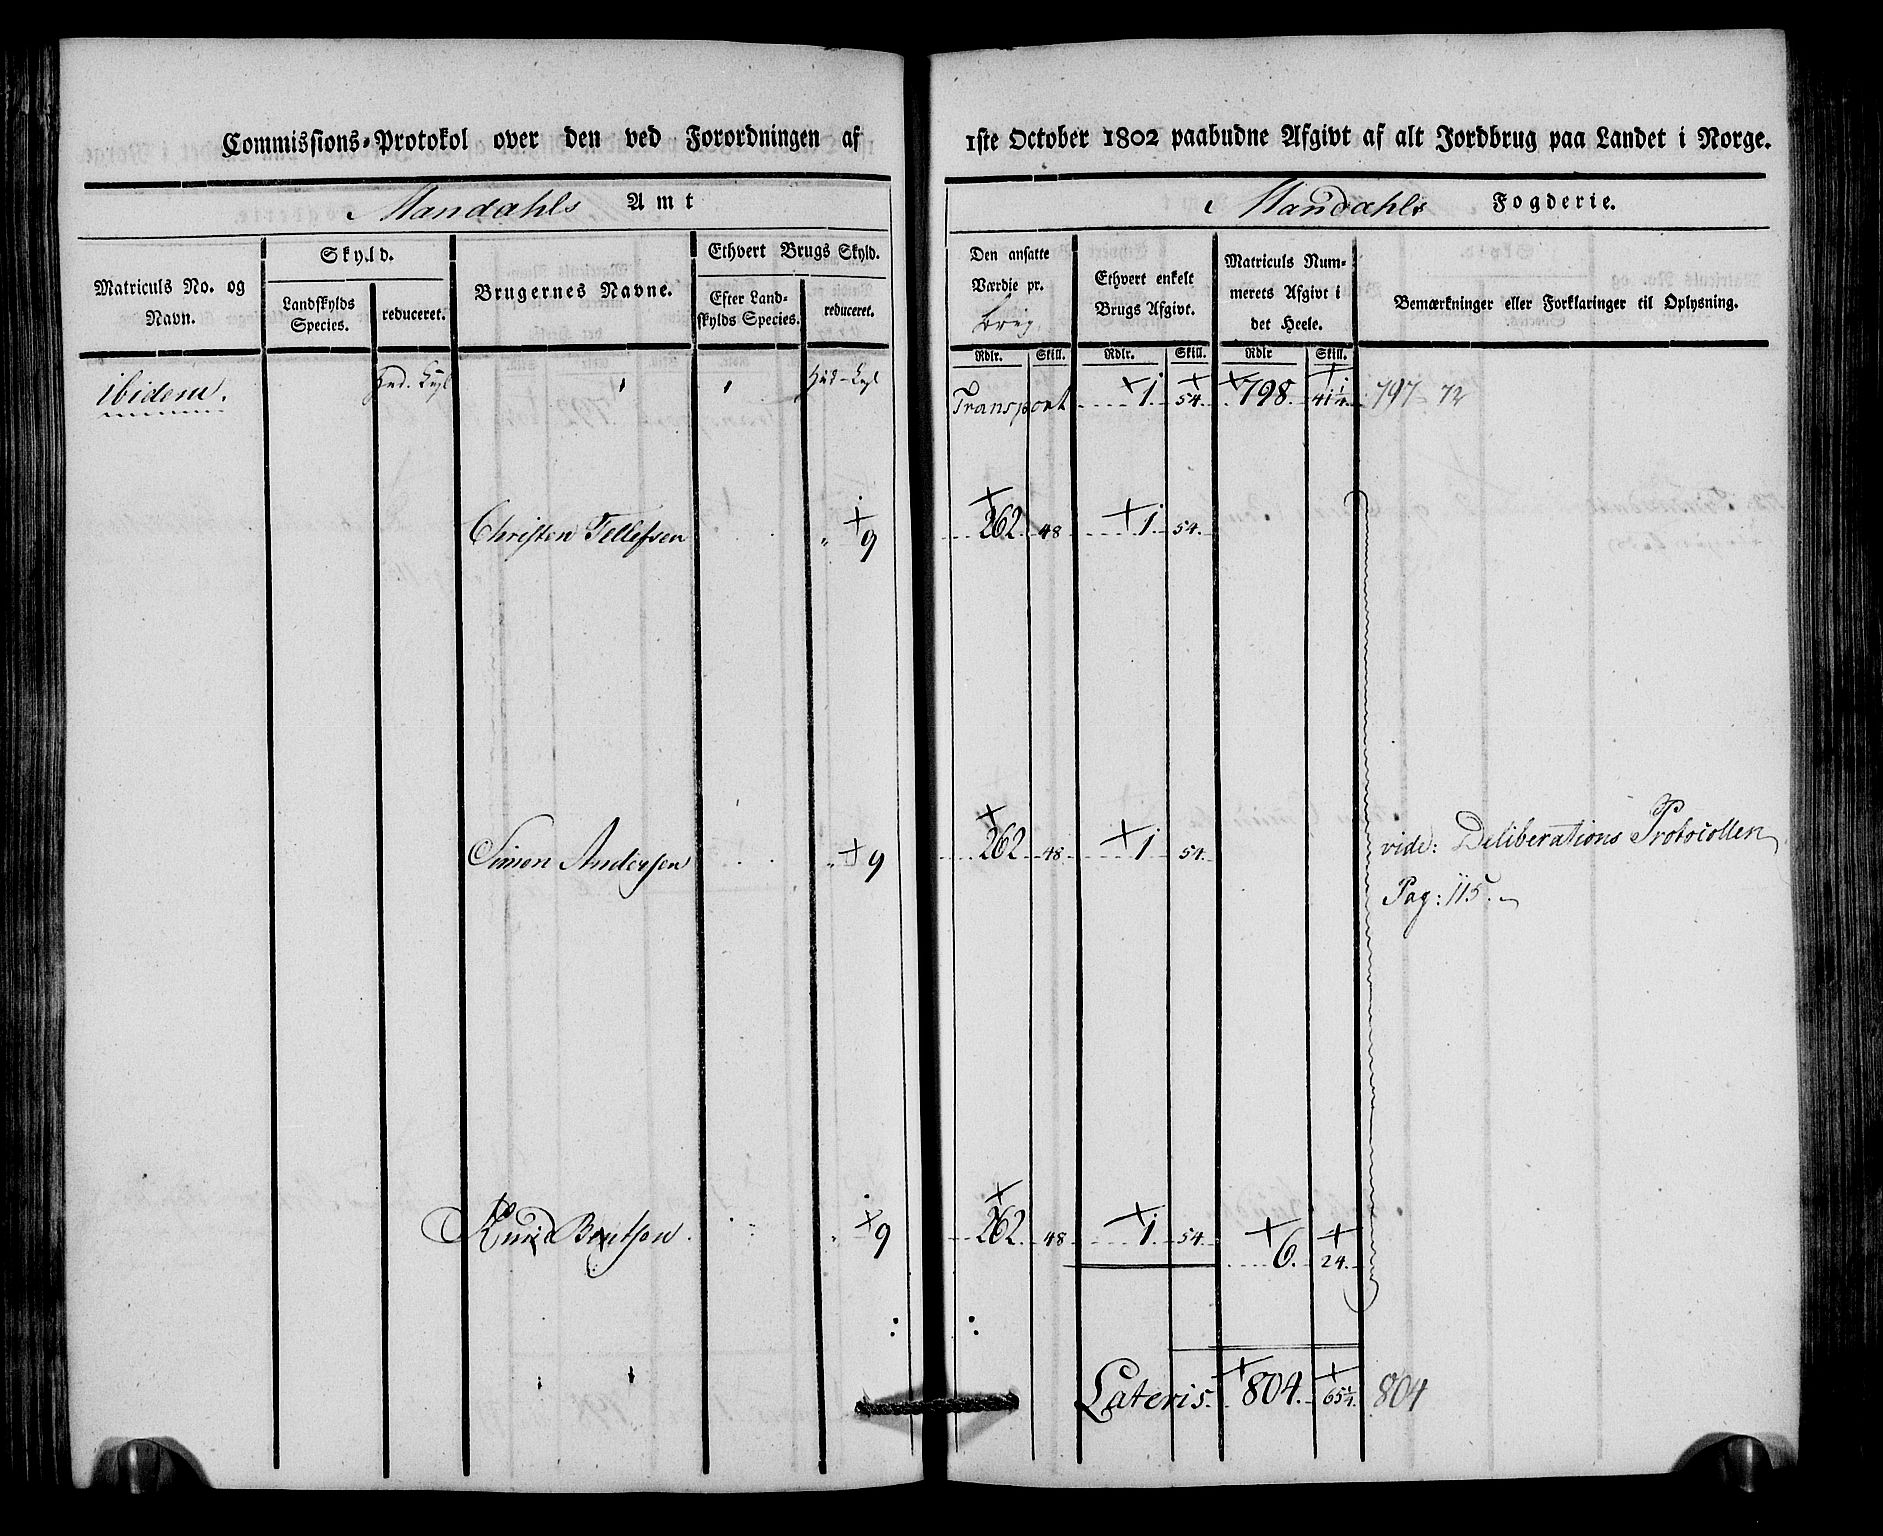 Commissions-Protokol over den ved Forordningen af 1ste October 1802 paabudne Afgivt af alt Jordbrug paa Landet i Norge.
Mandahls Amt Mandahls Fogderie.
Matriculs No. og Navn.
Skyld.
Landskylds Species.
reduceret.
Brugernes Navne.
Ethvert Brugs Skyld.
Efter Landskylds Species.
reduceret.
Den ansatte Værdie pr.
Brug.
Rdlr. Skill.
Ethvert enkelt Brugs Afgivt.
Rdlr. Skill.
Matriculs Nummerets Afgivt i det Heele.
Rdlr Skill.
Bemærkninger eller Forklaringer til Oplysning.
ibidem. Hud. Kugl Hud - Kugl Transport 1. 54. 798. 41 1/4. 797 72
Christen Tellefsen " 9 262. 48 1. 54.
Simon Andersen " 9 262 48 1 54. vide: Deliberations Protocollen
Pag: 115.
Knud Bentsen. " 9 262. 48 1. 54. 6. 24.
Lateris. 804. 65 1/4. 804